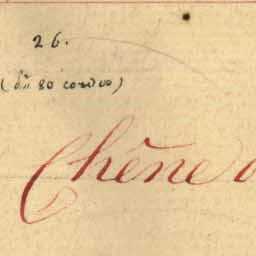 26.
(du 80 cordes)
Chêne d